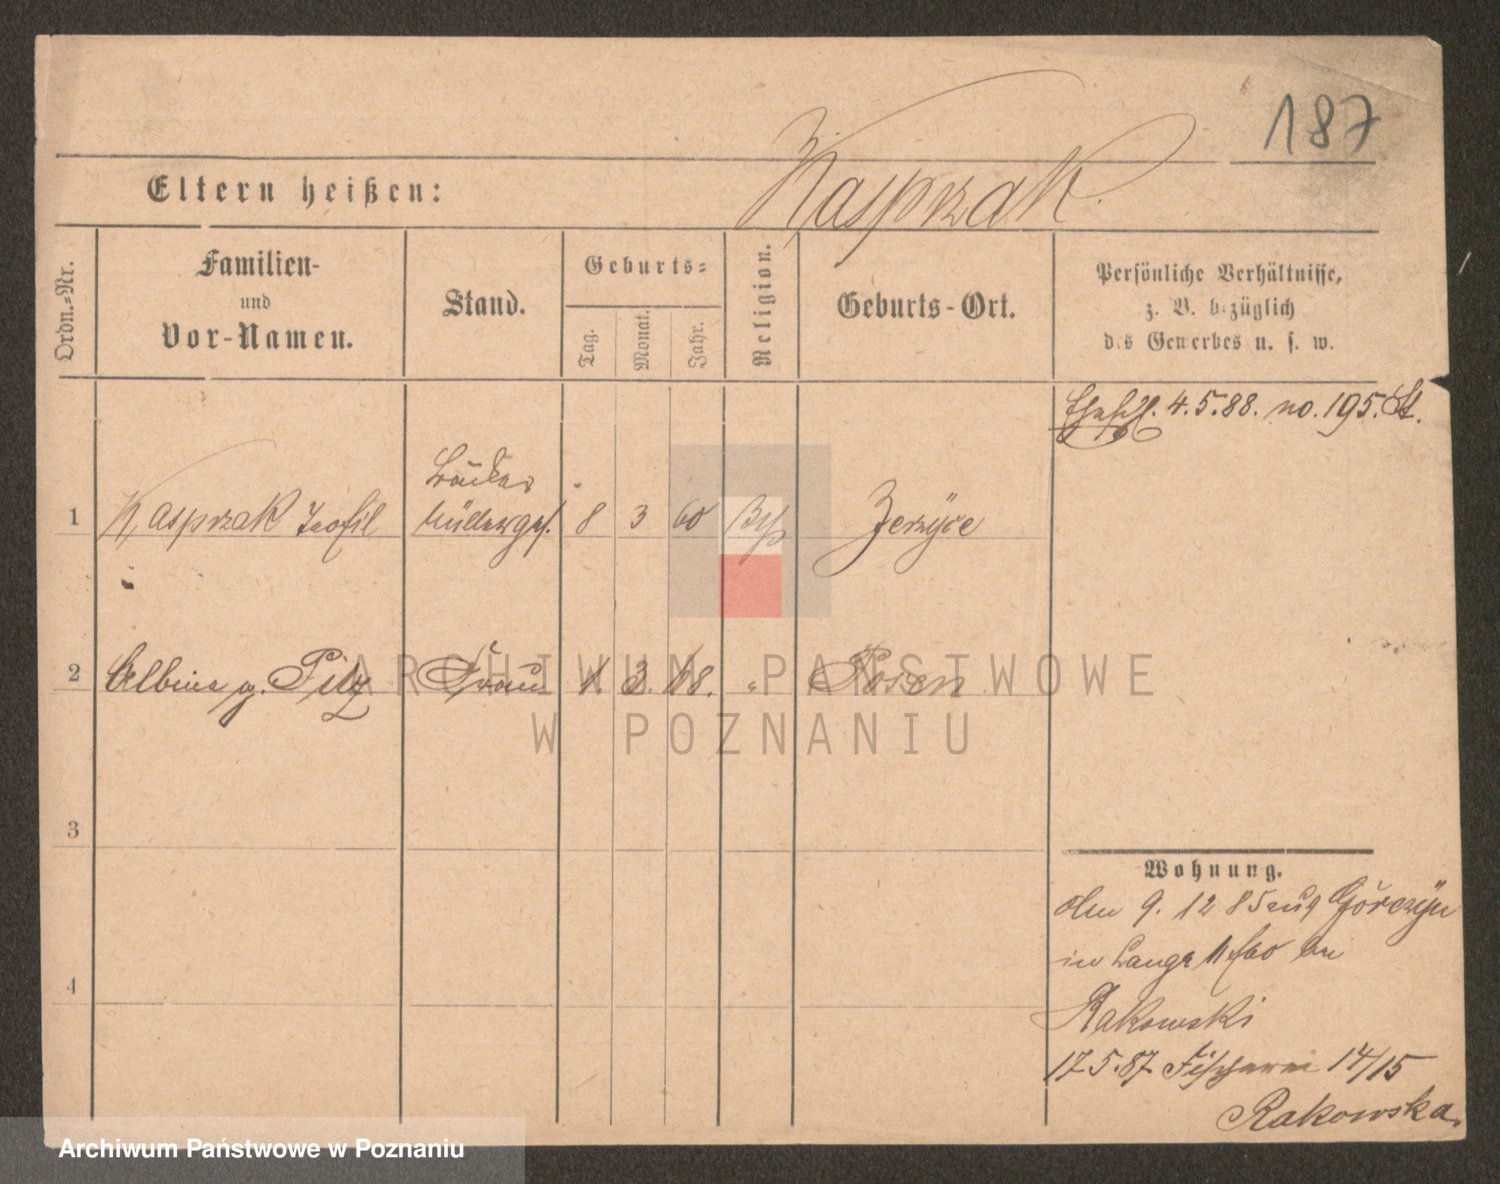 187
Kasprzak
Eltern heißen:
Ordn.=Nr.
Familien-
und
Vor-Namen.
Stand.
Geburts=
Tag.
Monat.
Jahr.
Religion.
Geburts-Ort.
Persönliche Verhältnisse,
z. B. bezüglich
des Gewerbes u. s. w.
4.5.88. no. 195. St.
1 Kasprzak Teofil
Müllerges. 8 3 60 Zerzyce
2 Albina g. Pilz Frau 1 3. 68. " Posen
3
4
Wohnung.
9. 12 85 aus Górczyn
in Lange
Rakowski
17 5.87 Fischerei 14/15
Rakowska.
ARCHIWUM PAŃSTWOWE
W POZNANIU
Archiwum Państwowe w Poznaniu